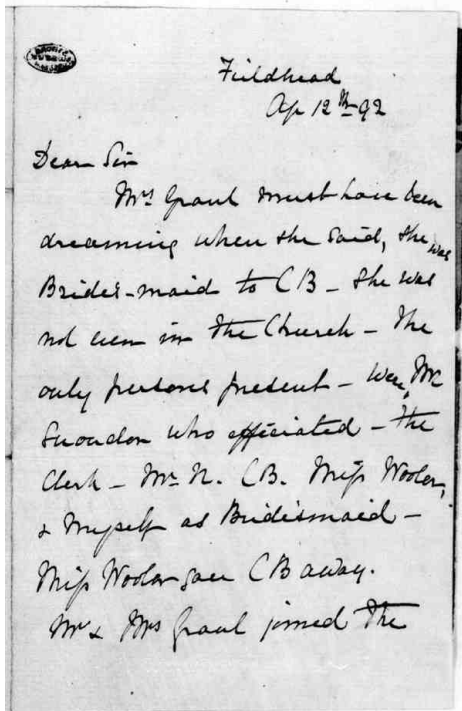 BRONTË
MUSEUM
Fieldhead
Ap 12th 92
Dear Sir
Mrs Grant must have been
dreaming when she said, she was
Brides-maid to CB - She was
not even in the Church - The
only persons present - were, Mr
Sowden who officiated - the
Clerk - Mr N. CB. Miss Wooler,
& Myself as Bridesmaid -
Miss Wooler gave CB away.
Mr & Mrs Grant joined the